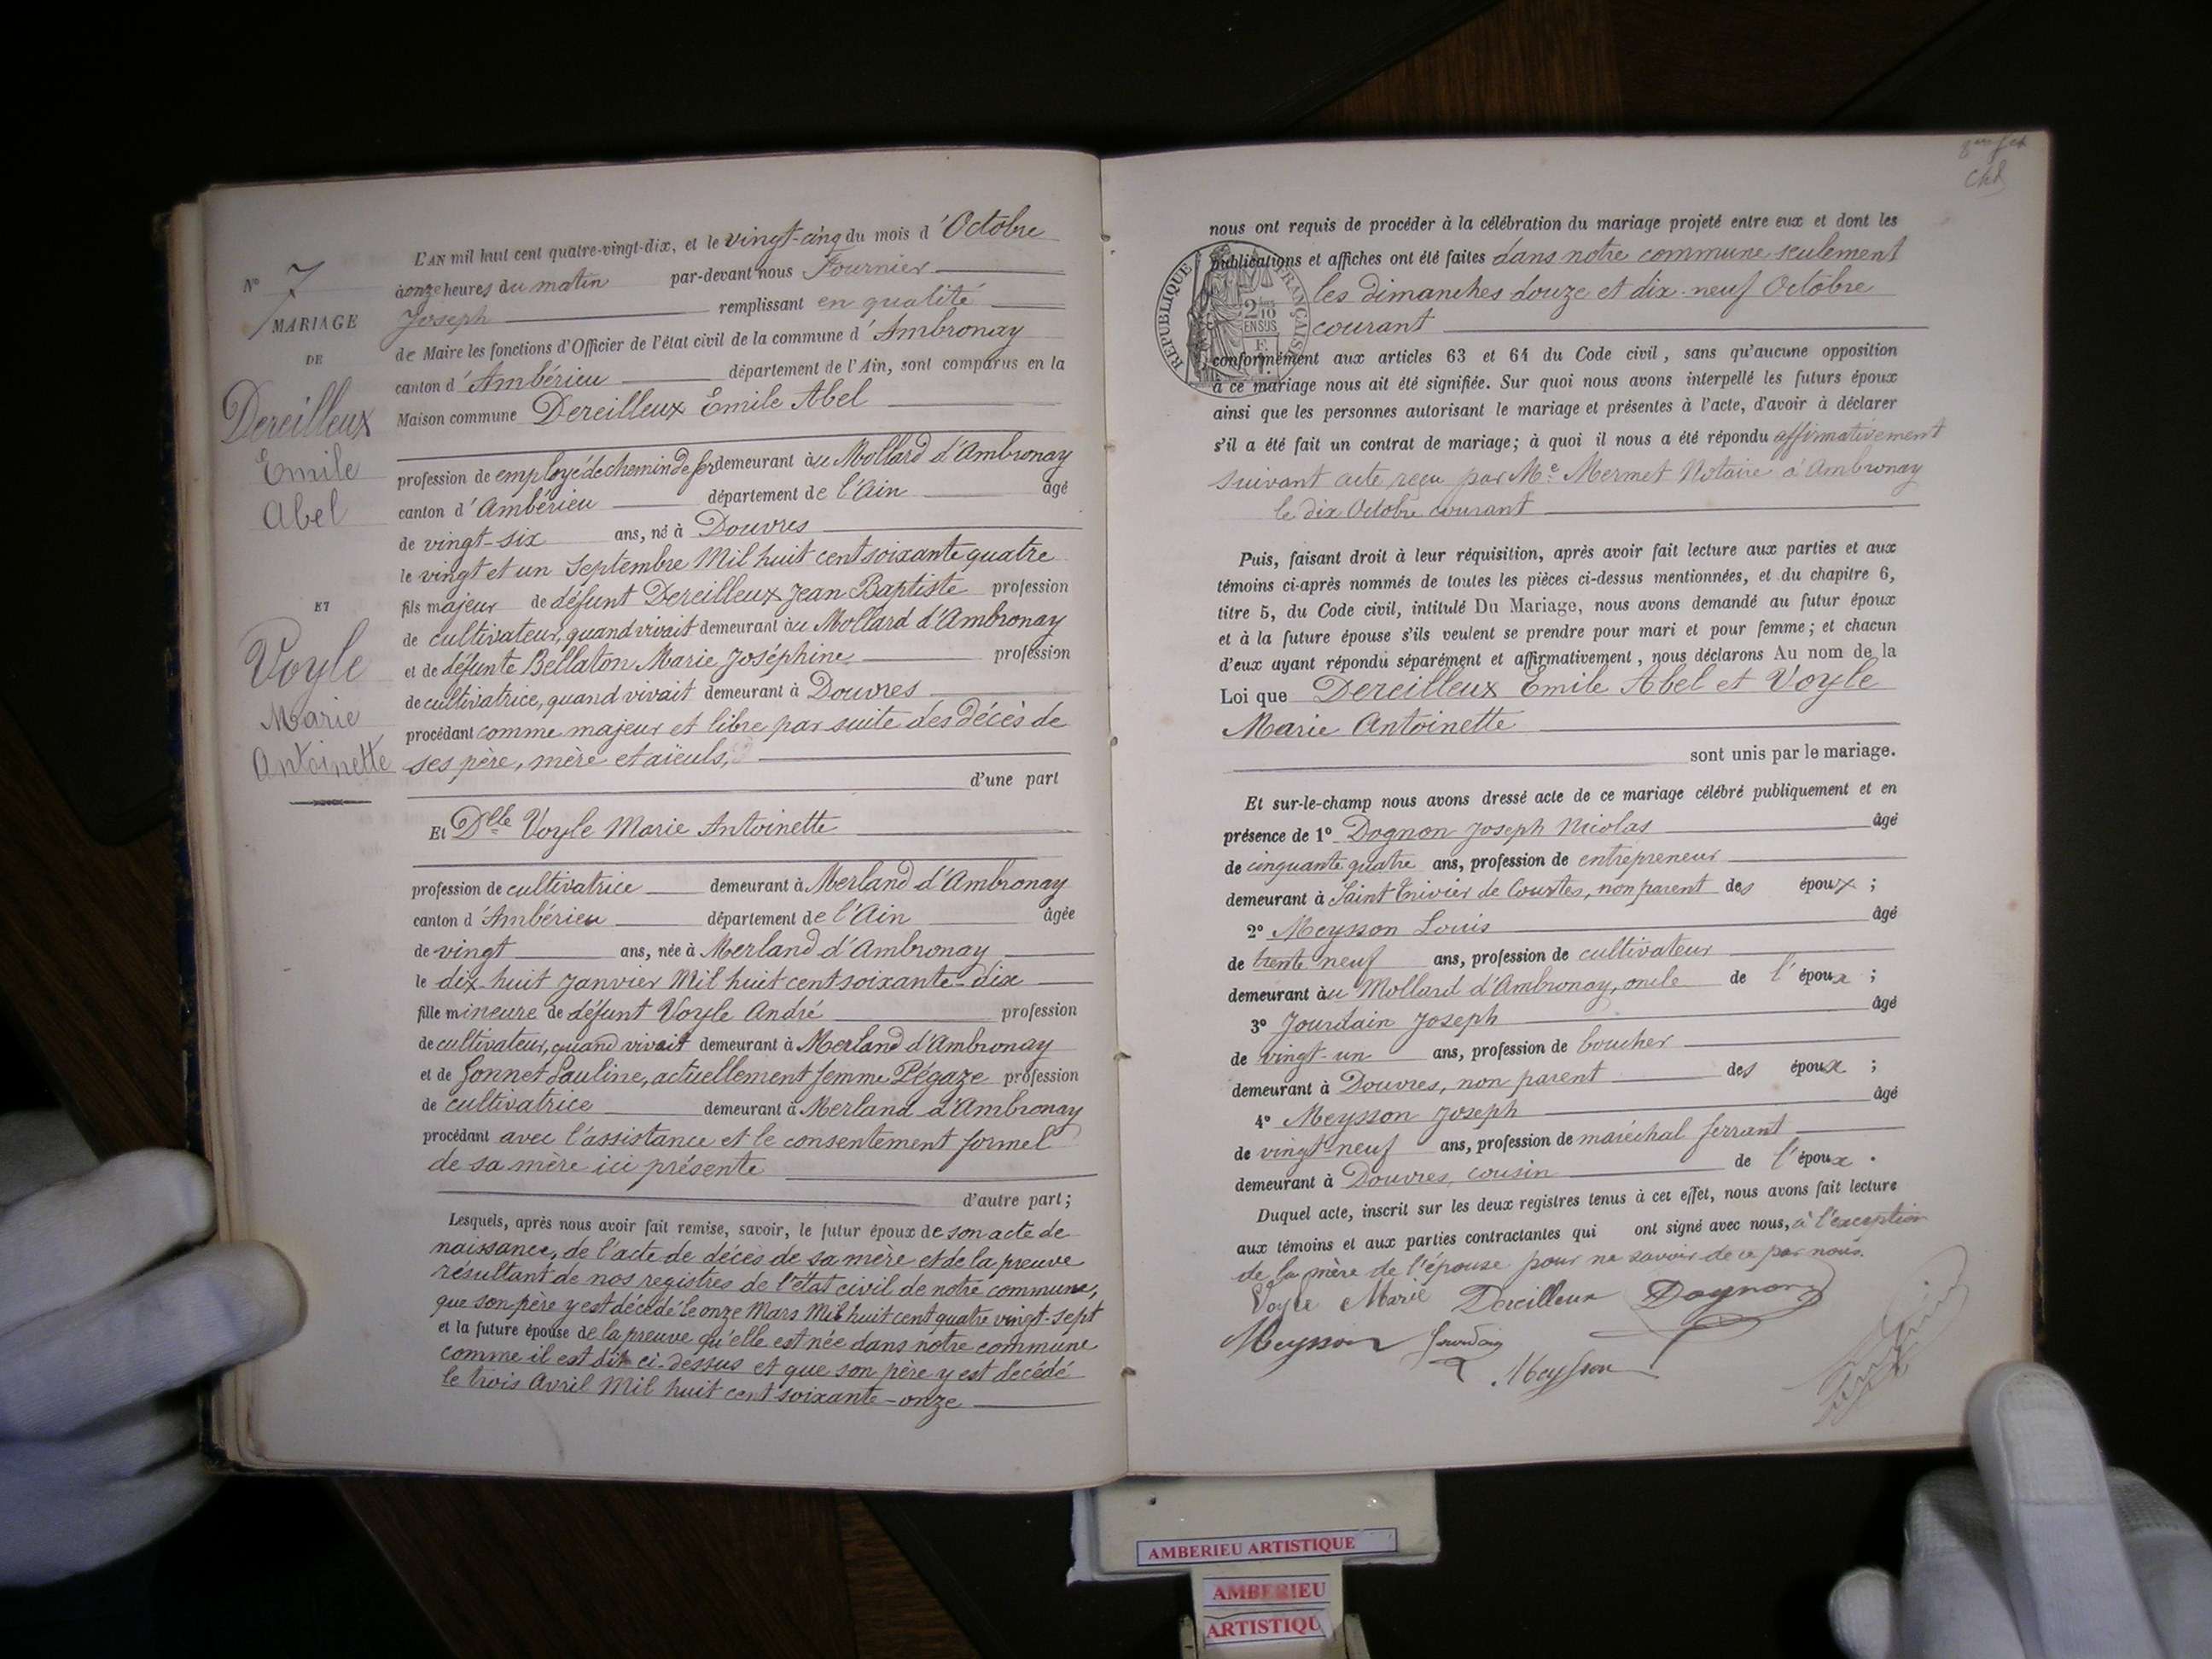 L'AN mil huit cent quatre-vingt-dix, et le vingt-cinq du mois d'Octobre
à onze heures du matin par-devant nous Fournier
Joseph remplissant en qualité
de Maire les fonctions d'Officier de l'état civil de la commune d'Ambronay
canton d'Ambérieu département de l'Ain, sont comparus en la
Maison commune Dereilleux Emile Abel
profession de employé de chemin de fer demeurant àu Mollard d'Ambronay
canton d'Ambérieu département de l'Ain âgé
de vingt-six ans, né à Douvres
le vingt et un Septembre Mil huit cent soixante quatre
fils majeur de défunt Dereilleux Jean Baptiste profession
de cultivateur, quand vivait demeurant àu Mollard d'Ambronay
et de défunte Bellaton Marie Joséphine profession
de cultivatrice, quand vivait demeurant à Douvres
procédant comme majeur et libre par suite des décès de
ses père, mère et aïeuls,
d'une part
Et Dlle Voyle Marie Antoinette
profession de cultivatrice demeurant à Merland d'Ambronay
canton d'Ambérieu département de l'Ain âgée
de vingt ans, née à Merland d'Ambronay
le dix-huit Janvier Mil huit cent soixante-dix
fille mineure de défunt Voyle André profession
de cultivateur, quand vivait demeurant à Merland d'Ambronay
et de Gonnet Pauline, actuellement femme Pégaze profession
de cultivatrice demeurant à Merland d'Ambronay
procédant avec l'assistance et le consentement formel
de sa mère ici présente
d'autre part;
Lesquels, après nous avoir fait remise, savoir, le futur époux de son acte de
naissance, de l'acte de décès de sa mère et de la preuve
résultant de nos registres de l'état civil de notre commune,
que son père y est décédé le onze Mars Mil huit cent quatre vingt-sept
et la future épouse de la preuve qu'elle est née dans notre commune
comme il est dit ci-dessus et que son père y est décédé
le trois Avril Mil huit cent soixante-onze
N° 7
MARIAGE
DE
Dereilleux
Emile
Abel
ET
Voyle
Marie
Antoinette
nous ont requis de procéder à la célébration du mariage projeté entre eux et dont les
publications et affiches ont été faites dans notre commune seulement
les dimanches douze et dix-neuf Octobre
courant
conformément aux articles 63 et 64 du Code civil, sans qu'aucune opposition
à ce mariage nous ait été signifiée. Sur quoi nous avons interpellé les futurs époux
ainsi que les personnes autorisant le mariage et présentes à l'acte, d'avoir à déclarer
s'il a été fait un contrat de mariage; à quoi il nous a été répondu affirmativement
suivant acte reçu par Me Mermet Notaire à Ambronay
le dix Octobre courant
Puis, faisant droit à leur réquisition, après avoir fait lecture aux parties et aux
témoins ci-après nommés de toutes les pièces ci-dessus mentionnées, et du chapitre 6,
titre 5, du Code civil, intitulé Du Mariage, nous avons demandé au futur époux
et à la future épouse s'ils veulent se prendre pour mari et pour femme; et chacun
d'eux ayant répondu séparément et affirmativement, nous déclarons Au nom de la
Loi que Dereilleux Emile Abel et Voyle
Marie Antoinette
sont unis par le mariage.
Et sur-le-champ nous avons dressé acte de ce mariage célébré publiquement et en
présence de 1° Dognon Joseph Nicolas âgé
de cinquante quatre ans, profession de entrepreneur
demeurant à Saint Trivier de Courtes, non parent des époux;
2° Meysson Louis âgé
de trente neuf ans, profession de cultivateur
demeurant àu Mollard d'Ambronay, oncle de l'époux;
3° Jourdain Joseph âgé
de vingt-un ans, profession de boucher
demeurant à Douvres, non parent des époux;
4° Meysson Joseph âgé
de vingt-neuf ans, profession de maréchal ferrant
demeurant à Douvres, cousin de l'époux.
Duquel acte, inscrit sur les deux registres tenus à cet effet, nous avons fait lecture
aux témoins et aux parties contractantes qui ont signé avec nous, à l'exception
de la mère de l'épouse pour ne savoir de ce par nous.
Voyle Marie Dereilleux Dognon
Meysson Jourdain
Meysson
RÉPUBLIQUE FRANÇAISE
2/10
EN SUS
AMBERIEU ARTISTIQUE
AMBERIEU
ARTISTIQU